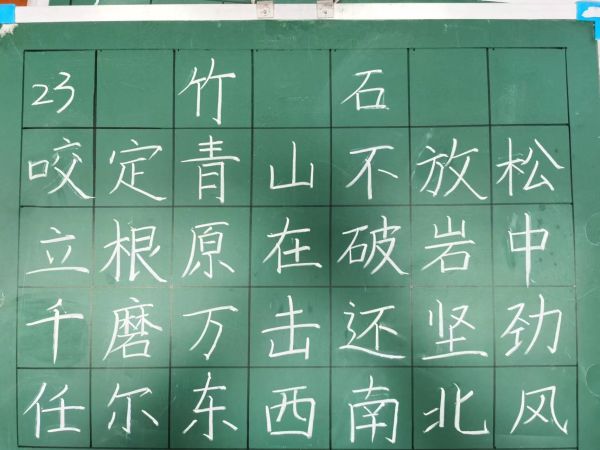 23 竹 石
咬定青山不放松
立根原在破岩中
千磨万击还坚劲
任尔东西南北风